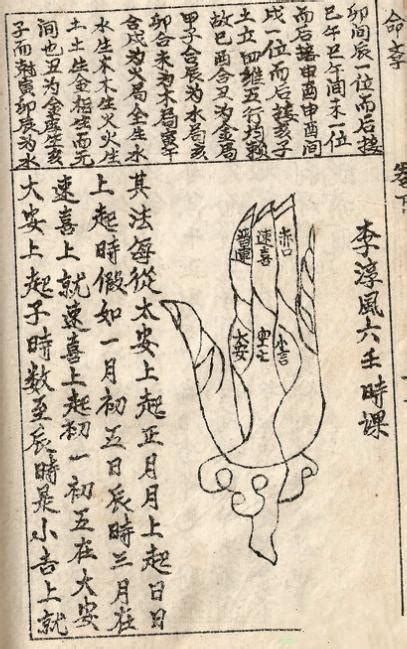 卯間辰一位而后接
巳午巳午間未一位
而后接申酉申酉間
戌一位而后接亥子
土立四維五行均
故巳酉合丑为金局
甲子合辰为水局亥
卯合未为木局寅午
合戌为火局金生水
水生木木生火火生
土土生金相生而无
間也丑为金库生亥
子而射寅卯辰为水
李淳風六壬時課
赤口
速喜
小吉
大安
其法每從太安上起正月月上起日日
上起時假如一月初五日辰時三月在
速喜上就速喜上起初一初五在大安
大安上起子時数至辰時是小吉上就